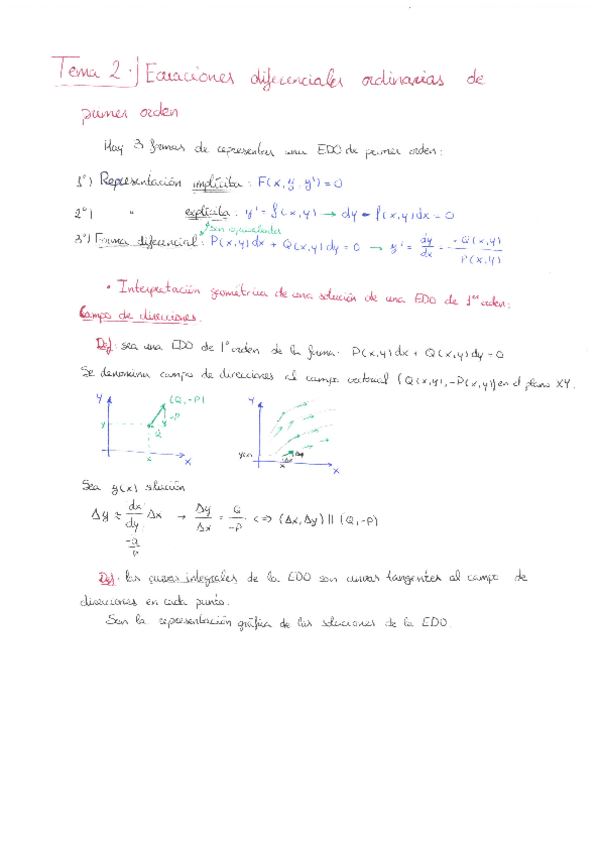 Tema 2. Ecuaciones diferenciales ordinarias de
primer orden
Hay 3 formas de representar una EDO de primer orden:
1º) Representación implícita: F(x, y, y') = 0
2º) " explícita: y' = f(x,y) → dy - f(x,y)dx = 0
son equivalentes
3º) Forma diferencial: P(x,y)dx + Q(x,y)dy = 0 → y' = dy/dx = -Q(x,y)/P(x,y)
• Interpretación geométrica de una solución de una EDO de 1er orden:
Campo de direcciones.
Def: sea una EDO de 1º orden de la forma: P(x,y)dx + Q(x,y)dy = 0
Se denomina campo de direcciones al campo vectorial (Q(x,y), -P(x,y)) en el plano XY.
Y (Q,-P) Y
y -P
Q
y(x)
x X x Δx Δy X
Sea y(x) solución
Δy ≈ dx/dy Δx → Δy/Δx = Q/-P <=> (Δx, Δy) || (Q,-P)
-Q/P
Def: las curvas integrales de la EDO son curvas tangentes al campo de
direcciones en cada punto.
Son la representación gráfica de las soluciones de la EDO.